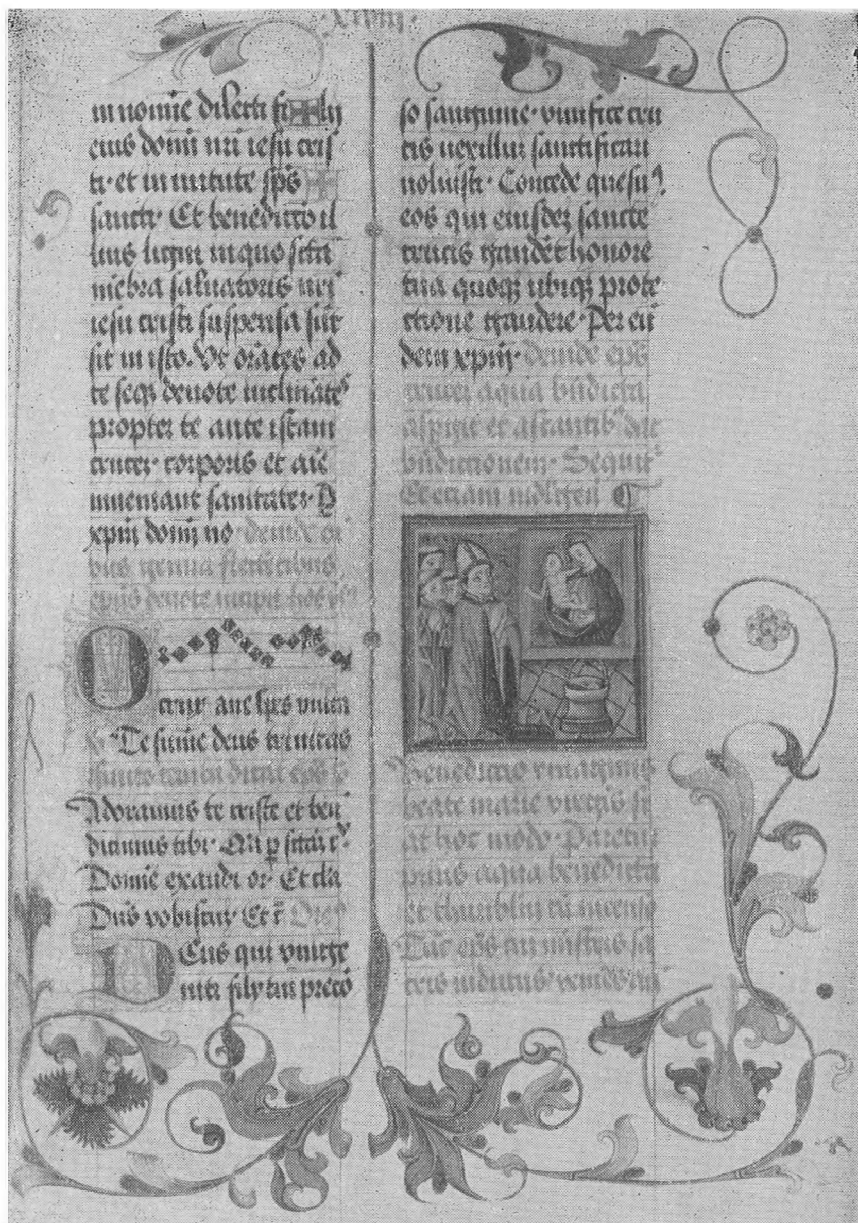 in nomīe dilecti fi ✠ lij
eius domī nrī iesu cris
ti· et in uirtute sp̄s ✠
sancti· Et benedictio il
lius ligni in quo sctā
mēbra saluatoris nrī
iesu cristi suspensa sūt
sit in isto. Vt orātes ac
te seq̄ deuote inclināteˢ
propter te ante istam
crucez· corporis et aīe
inueniant sanitatez· P
xpm̄ domī no deinde
genua
epūs deuote
O
crux aue spes vnica
Te sum̄e deus trinitas
Adoramus te criste et ben
dicimus tibi· Q̄i p̱ sctām c
Domīe exaudi or̄ Et cla
Dn̄s vobiscuz Et c̄
DEus qui vnige
niti filij tui preco
so sanguine· viuifice cru
cis uexilluz sanctificari
uoluisti· Concede quesuˢ
eos qui eiusdez sancte
crucis gaudēt honore
tua quoq; ubiq; prote
ctione gaudere· Per eū
dem xpm̄· deinde ep̄s
aqua bn̄dicta
et astantibˢ dat
bn̄dictionem· Sequit
Benedictio ymaginis
beate marie virgīs fi
at hoc modo· Paretur
prius aqua benedicta
et thuribluz cū incenso
Tūc ep̄s cuz mīstris sa
cris indutus